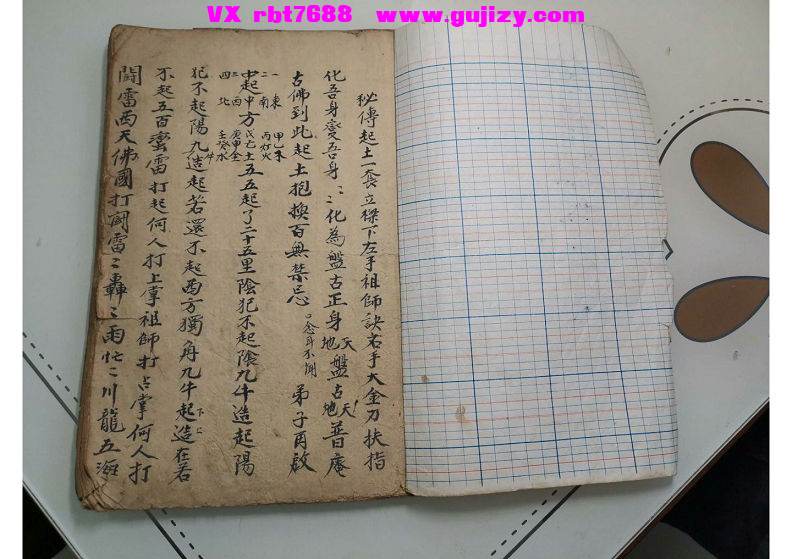 VX rbt7688 www.gujizy.com
秘傳起土一套立椺下左手祖師訣右手大金刀扶指
化吾身變吾身〻〻化為盤古正身天地盤古天地普庵
古佛到此起土抱換百無禁忌 弟子再啟
一東甲乙木
二南丙灯火
中起中方戊己土五五起了二十五里陰犯不起陰九牛造起陽
三西庚申金
四北壬癸水
犯不起陽九牛造起若還不起西方獨角九牛起造在若
不起五百蛮雷打起何人打上掌祖師打占掌何人打
闘雷西天佛國打闘雷〻轟〻雨忙〻川龍五海